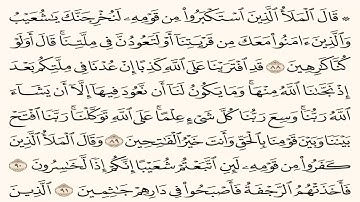 ۞ قَالَ ٱلْمَلَأُ ٱلَّذِينَ ٱسْتَكْبَرُوا۟ مِن قَوْمِهِۦ لَنُخْرِجَنَّكَ يَٰشُعَيْبُ
وَٱلَّذِينَ ءَامَنُوا۟ مَعَكَ مِن قَرْيَتِنَآ أَوْ لَتَعُودُنَّ فِى مِلَّتِنَا ۚ قَالَ أَوَلَوْ
كُنَّا كَٰرِهِينَ ٨٨ قَدِ ٱفْتَرَيْنَا عَلَى ٱللَّهِ كَذِبًا إِنْ عُدْنَا فِى مِلَّتِكُم بَعْدَ
إِذْ نَجَّىٰنَا ٱللَّهُ مِنْهَا ۚ وَمَا يَكُونُ لَنَآ أَن نَّعُودَ فِيهَآ إِلَّآ أَن يَشَآءَ
ٱللَّهُ رَبُّنَا ۚ وَسِعَ رَبُّنَا كُلَّ شَىْءٍ عِلْمًا ۚ عَلَى ٱللَّهِ تَوَكَّلْنَا ۚ رَبَّنَا ٱفْتَحْ
بَيْنَنَا وَبَيْنَ قَوْمِنَا بِٱلْحَقِّ وَأَنتَ خَيْرُ ٱلْفَٰتِحِينَ ٨٩ وَقَالَ ٱلْمَلَأُ ٱلَّذِينَ
كَفَرُوا۟ مِن قَوْمِهِۦ لَئِنِ ٱتَّبَعْتُمْ شُعَيْبًا إِنَّكُمْ إِذًا لَّخَٰسِرُونَ ٩٠
فَأَخَذَتْهُمُ ٱلرَّجْفَةُ فَأَصْبَحُوا۟ فِى دَارِهِمْ جَٰثِمِينَ ٩١ ٱلَّذِينَ